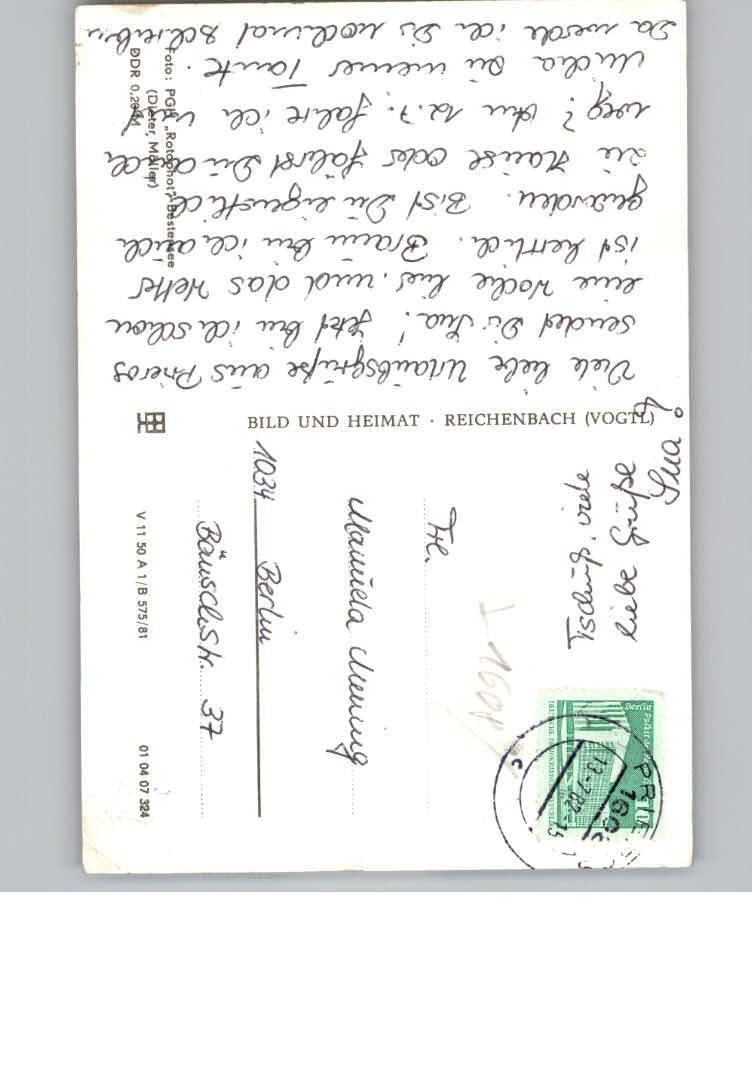 Viele liebe Urlaubsgrüße aus Prieros
sendet Dir Ina! Jetzt bin ich schon
eine Woche hier und das Wetter
ist herrlich. Braun bin ich auch
geworden. Bist Du eigentlich
zu Hause oder fährst Du auch
weg? Am 12.7. fahre ich nach
zu meiner Tante.
Da werde ich Dir nochmal schreiben
Tschüß, viele
liebe Grüße
Ina
BILD UND HEIMAT · REICHENBACH (VOGTL)
Foto: PGH „Rotophot" Bestensee
(Dieter, Möller)
DDR 0,20 M
V 11 50 A 1/B 575/81
01 04 07 324
Frl.
Manuela Mening
1034 Berlin
Bänschstr. 37
1608
Berlin Palast
DEUTSCHE DEMOKRATISCHE REPUBLIK
10
PRIE
1608
13.-7.82-15
c